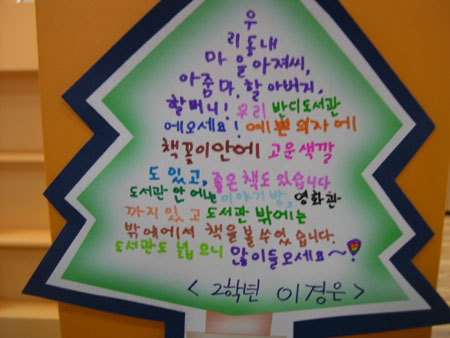 우
리 동 내
마 을 아저씨,
아줌마, 할아버지,
할머니! 우리 반디도서관
에오세요! 예쁜 의자에
책꽂이안에 고운색깔
도 있고, 좋은 책도 있습니다
도서관 안에는 이야기방, 영화관
까지 있고 도서관 밖에는
밖에에서 책을 볼수있습니다.
도서관도 넓으니 많이들오세요~!
< 2학년 이경은 >